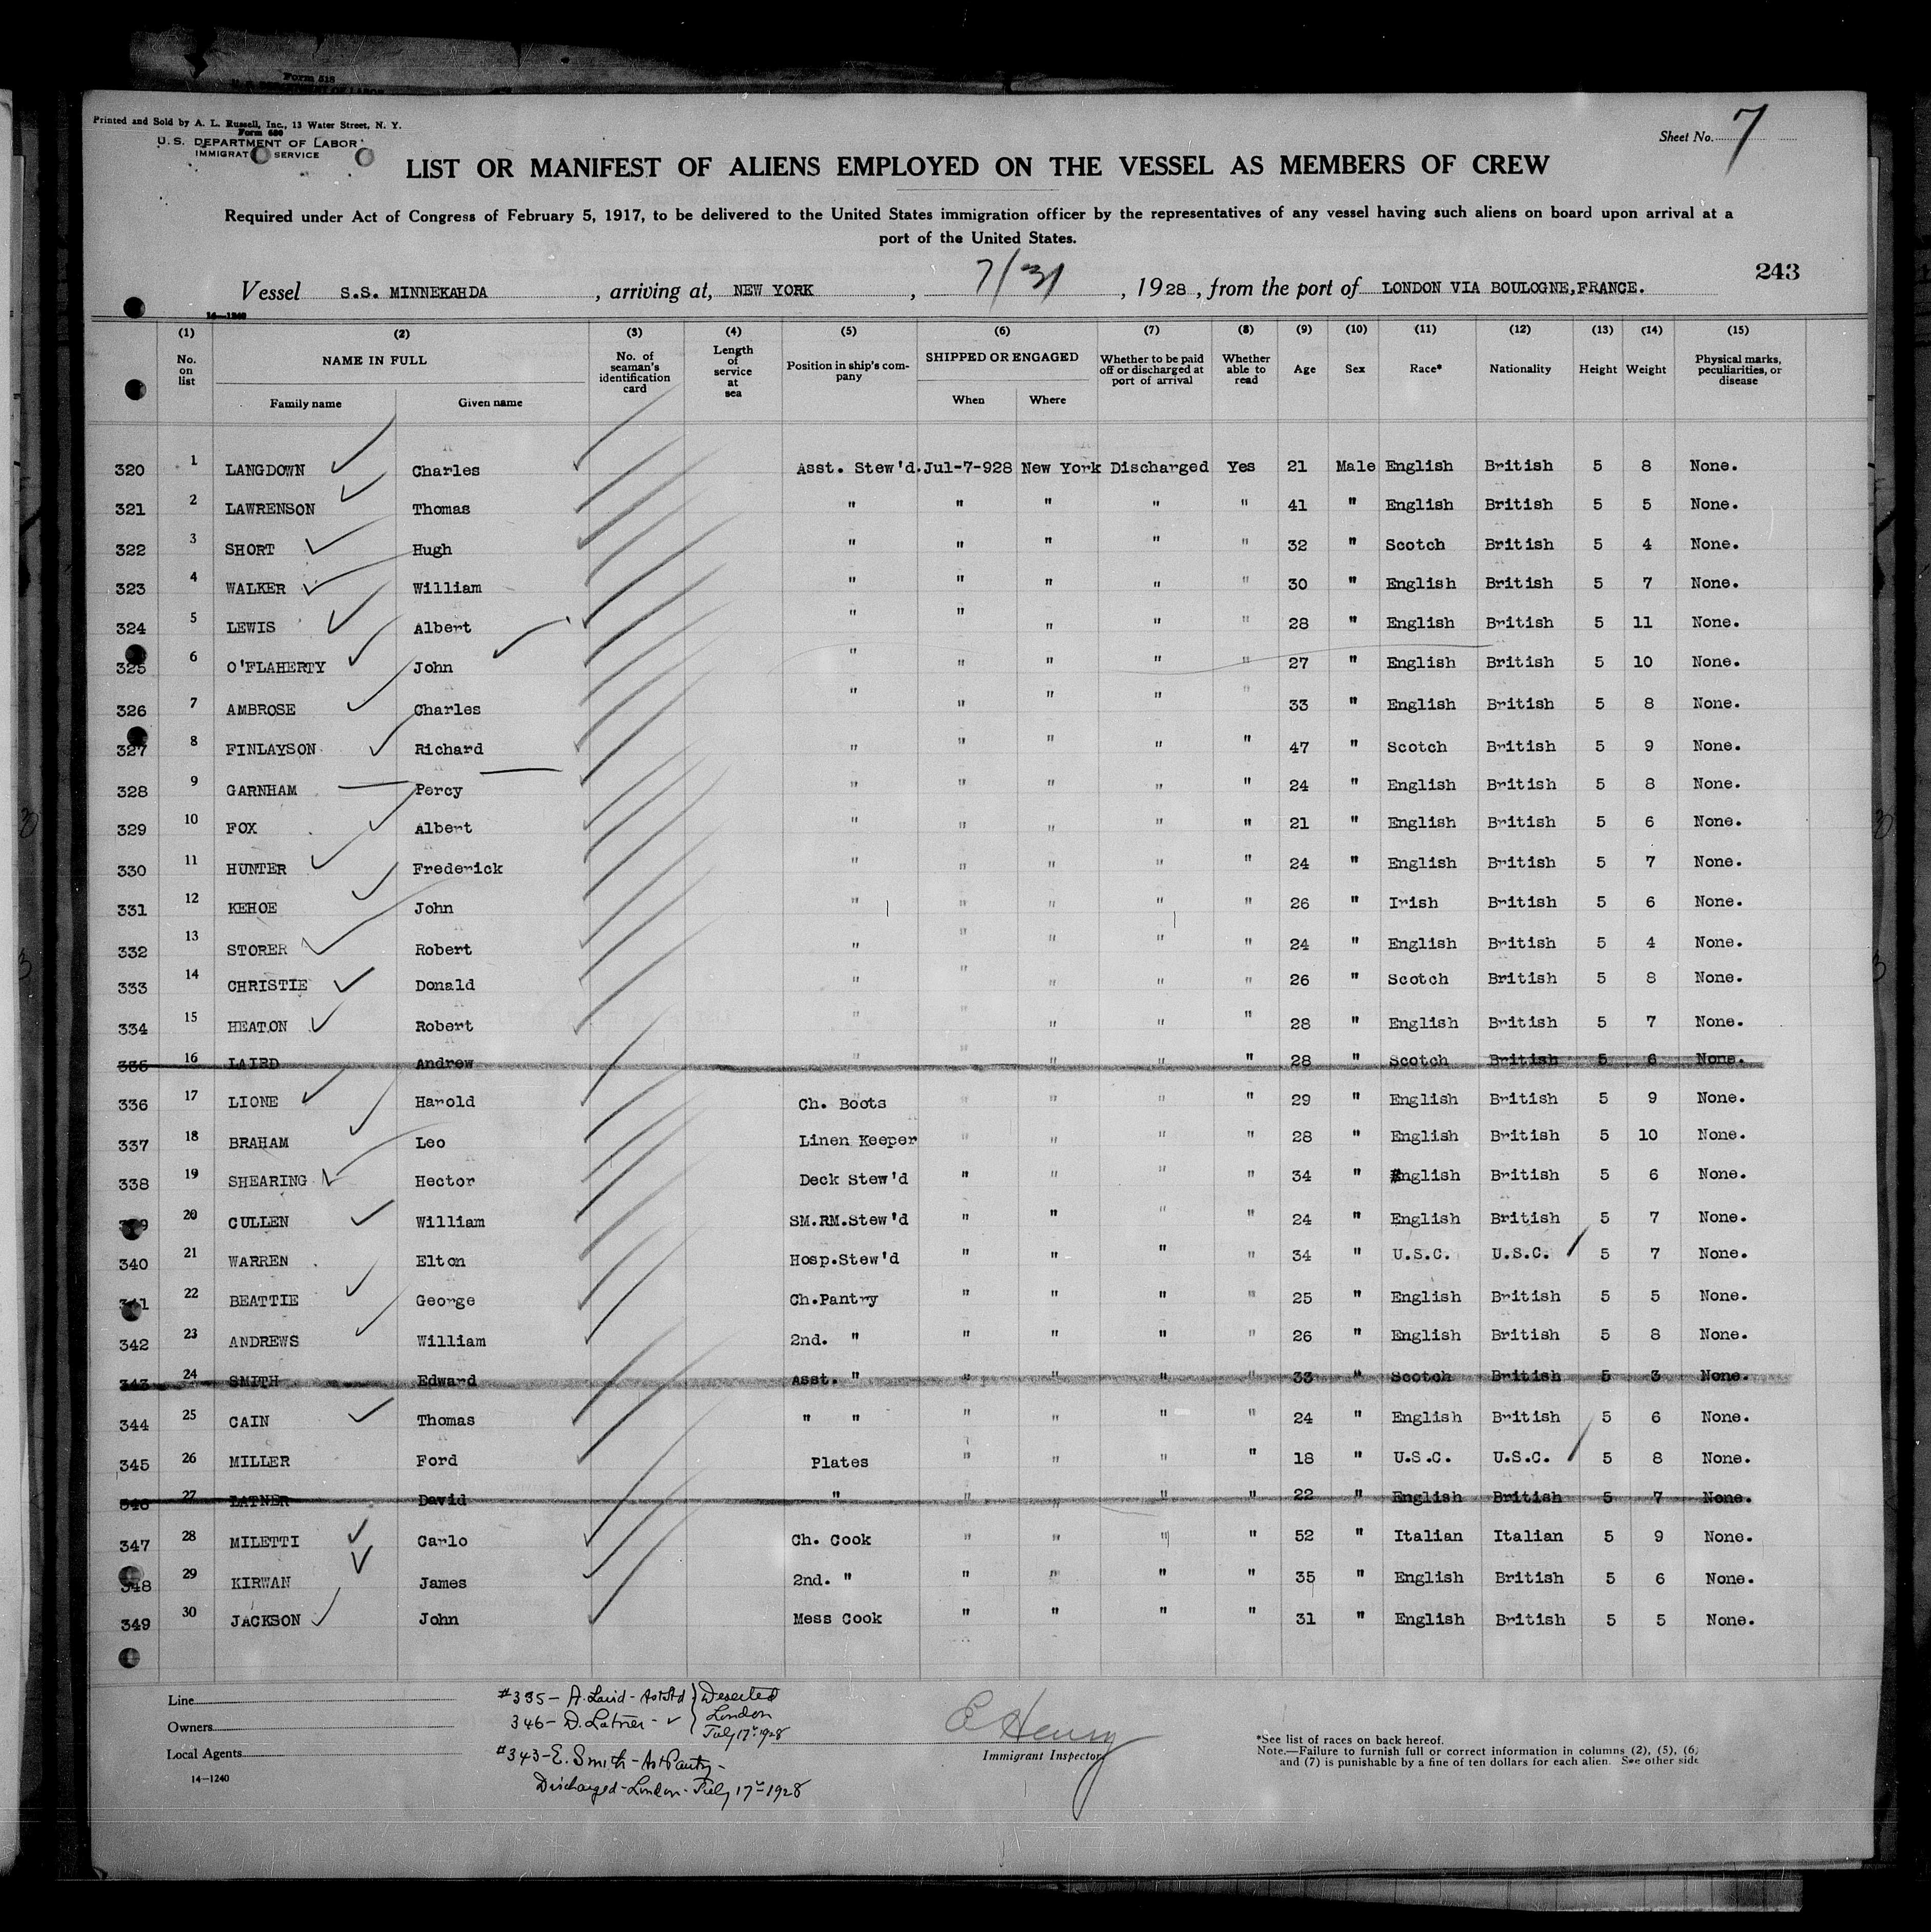 Form 518
Printed and Sold by A. L. Russell, Inc., 13 Water Street, N. Y.
Form 680
U. S. DEPARTMENT OF LABOR
IMMIGRAT SERVICE
Sheet No. 7
LIST OR MANIFEST OF ALIENS EMPLOYED ON THE VESSEL AS MEMBERS OF CREW
Required under Act of Congress of February 5, 1917, to be delivered to the United States immigration officer by the representatives of any vessel having such aliens on board upon arrival at a
port of the United States.
243
Vessel S.S. MINNEKAHDA, arriving at, NEW YORK, 7/31, 1928, from the port of LONDON VIA BOULOGNE,FRANCE.
14—1240
(1) (2) (3) (4) (5) (6) (7) (8) (9) (10) (11) (12) (13) (14) (15)
No. on list NAME IN FULL Family name Given name No. of seaman's identification card Length of service at sea Position in ship's company SHIPPED OR ENGAGED When Where Whether to be paid off or discharged at port of arrival Whether able to read Age Sex Race* Nationality Height Weight Physical marks, peculiarities, or disease
320 1 LANGDOWN Charles Asst. Stew'd. Jul-7-928 New York Discharged Yes 21 Male English British 5 8 None.
321 2 LAWRENSON Thomas " " " " " 41 " English British 5 5 None.
322 3 SHORT Hugh " " " " " 32 " Scotch British 5 4 None.
323 4 WALKER William " " " " " 30 " English British 5 7 None.
324 5 LEWIS Albert " " " " " 28 " English British 5 11 None.
325 6 O'FLAHERTY John " " " " " 27 " English British 5 10 None.
326 7 AMBROSE Charles " " " " " 33 " English British 5 8 None.
327 8 FINLAYSON Richard " " " " " 47 " Scotch British 5 9 None.
328 9 GARNHAM Percy " " " " " 24 " English British 5 8 None.
329 10 FOX Albert " " " " " 21 " English British 5 6 None.
330 11 HUNTER Frederick " " " " " 24 " English British 5 7 None.
331 12 KEHOE John " " " " " 26 " Irish British 5 6 None.
332 13 STORER Robert " " " " " 24 " English British 5 4 None.
333 14 CHRISTIE Donald " " " " " 26 " Scotch British 5 8 None.
334 15 HEATON Robert " " " " " 28 " English British 5 7 None.
335 16 LAIRD Andrew " " " " " 28 " Scotch British 5 6 None.
336 17 LIONE Harold Ch. Boots " " " " 29 " English British 5 9 None.
337 18 BRAHAM Leo Linen Keeper " " " " 28 " English British 5 10 None.
338 19 SHEARING Hector Deck Stew'd " " " " 34 " English British 5 6 None.
339 20 CULLEN William SM.RM.Stew'd " " " " 24 " English British 5 7 None.
340 21 WARREN Elton Hosp.Stew'd " " " " 34 " U.S.C. U.S.C. 5 7 None.
341 22 BEATTIE George Ch.Pantry " " " " 25 " English British 5 5 None.
342 23 ANDREWS William 2nd. " " " " " 26 " English British 5 8 None.
343 24 SMITH Edward Asst. " " " " " 33 " Scotch British 5 3 None.
344 25 CAIN Thomas " " " " " " 24 " English British 5 6 None.
345 26 MILLER Ford Plates " " " " 18 " U.S.C. U.S.C. 5 8 None.
346 27 LATNER David " " " " " 22 " English British 5 7 None.
347 28 MILETTI Carlo Ch. Cook " " " " 52 " Italian Italian 5 9 None.
348 29 KIRWAN James 2nd. " " " " " 35 " English British 5 6 None.
349 30 JACKSON John Mess Cook " " " " 31 " English British 5 5 None.
Line
Owners
Local Agents
14—1240
#335 - A. Laird - Asst Std } Deserted
346 - D. Latner - " } London
July 17th 1928
#343 - E. Smith - Ast Pantry -
Discharged - London - July 17th 1928
E Henry
Immigrant Inspector.
*See list of races on back hereof.
Note.—Failure to furnish full or correct information in columns (2), (5), (6)
and (7) is punishable by a fine of ten dollars for each alien. See other side